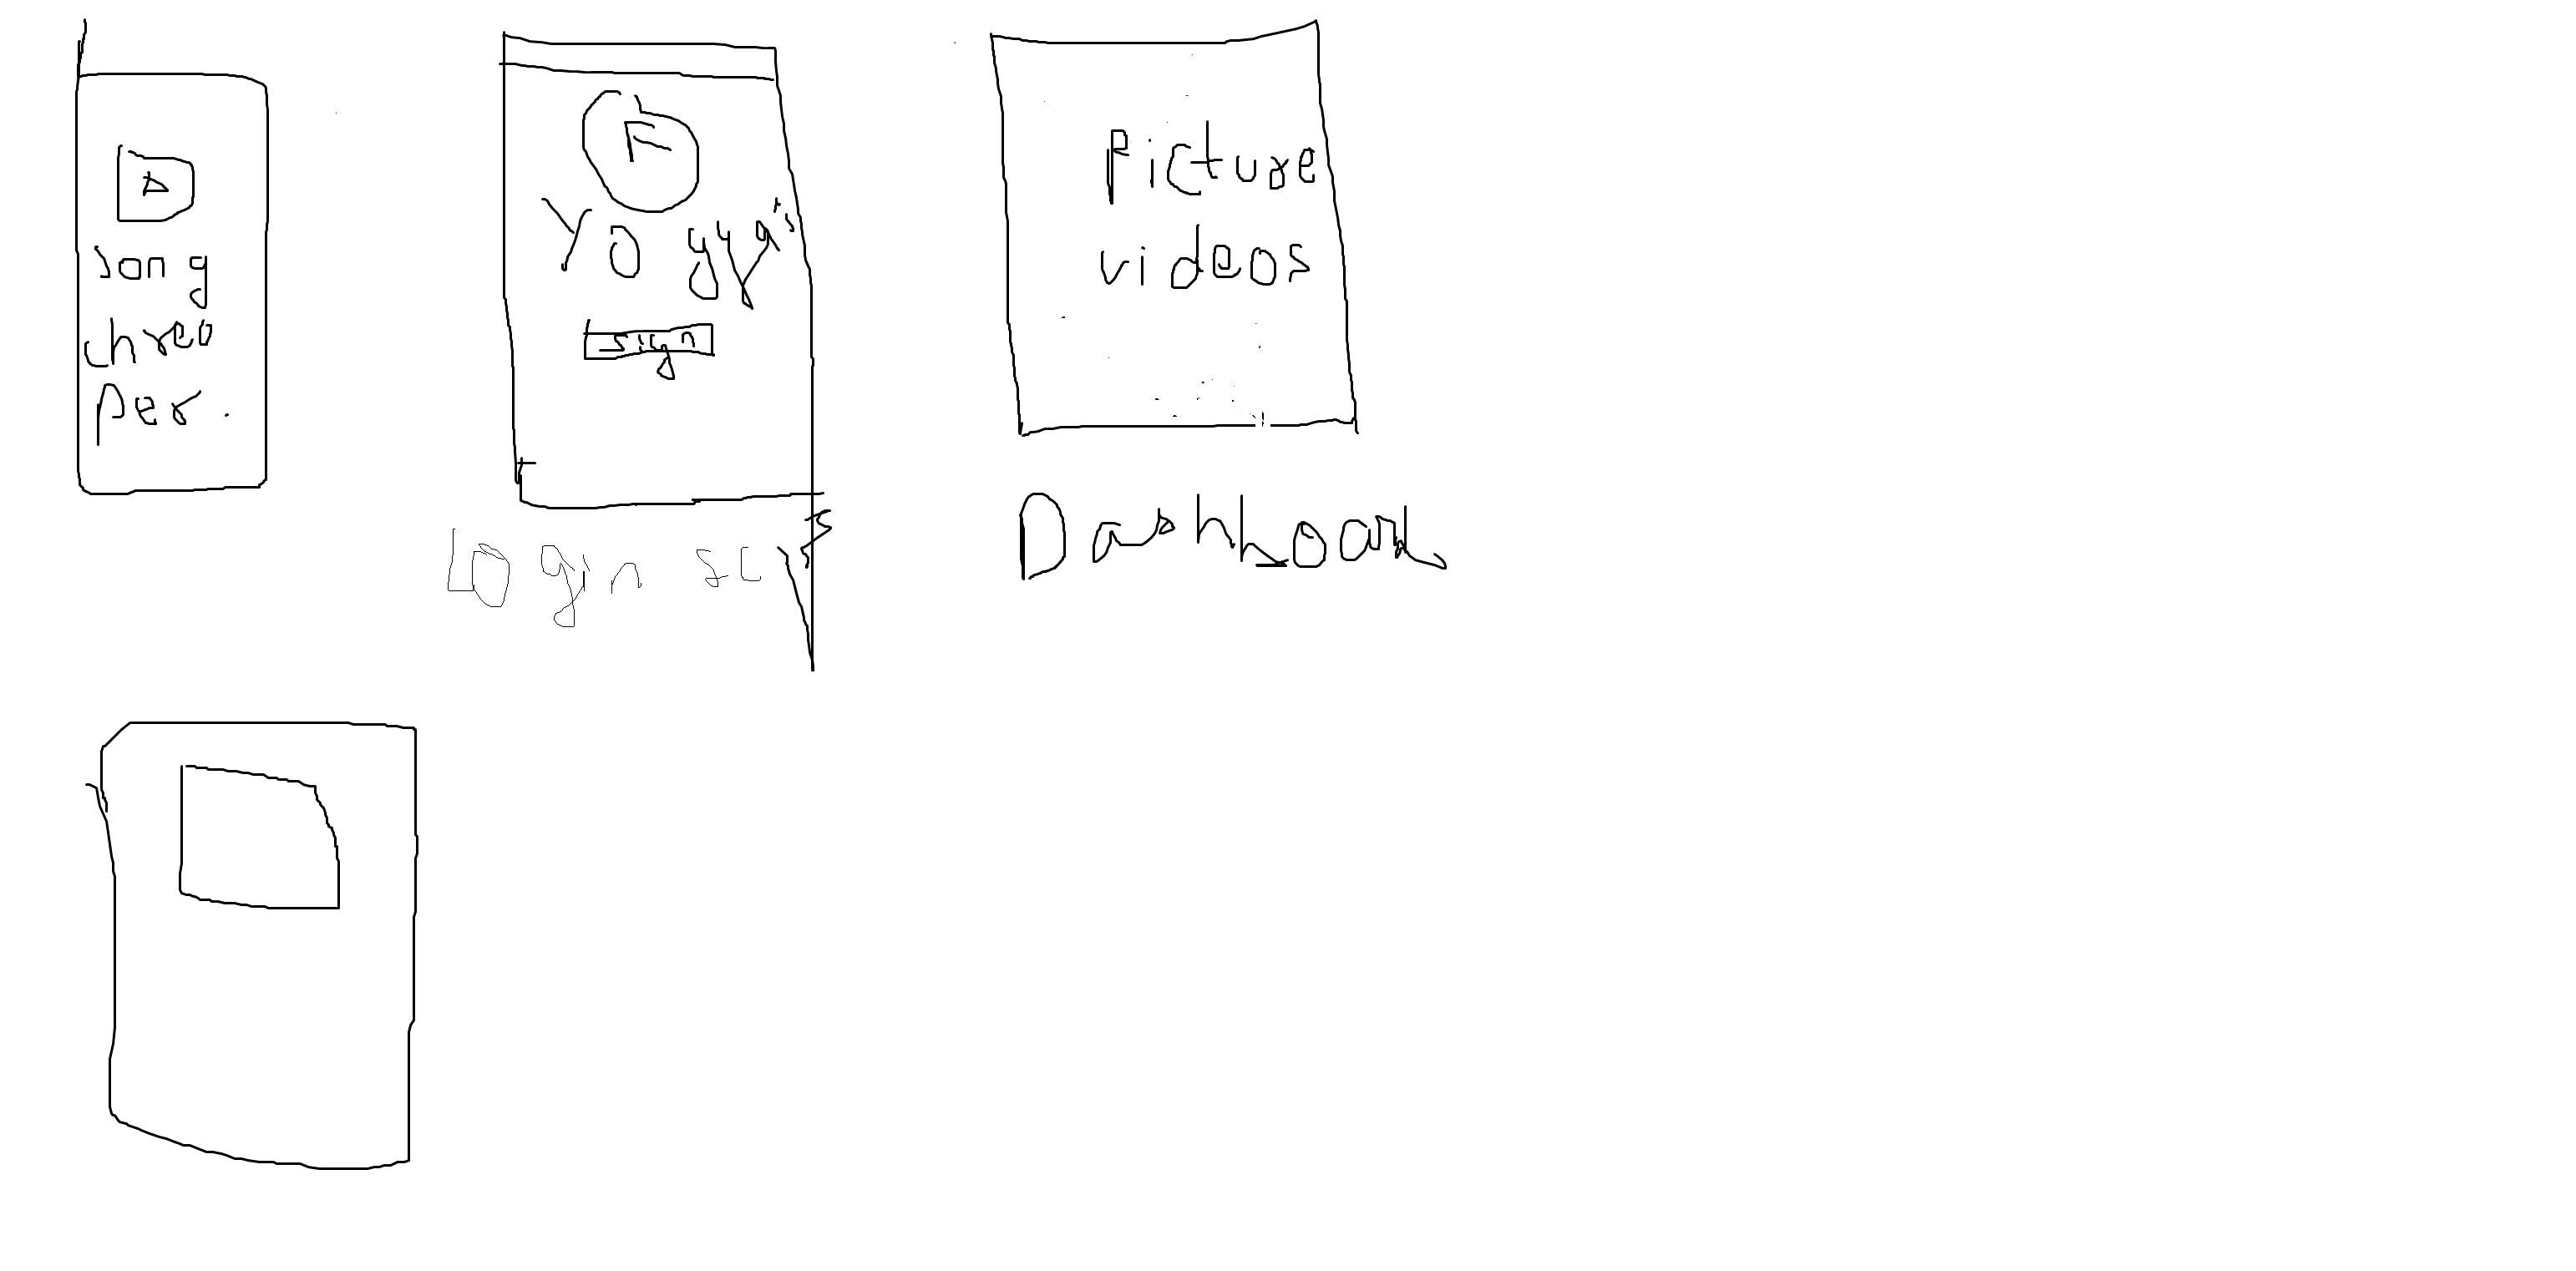 song
chreo
per.
F
Yo
sign
Login scr
picture
videos
Dashboard